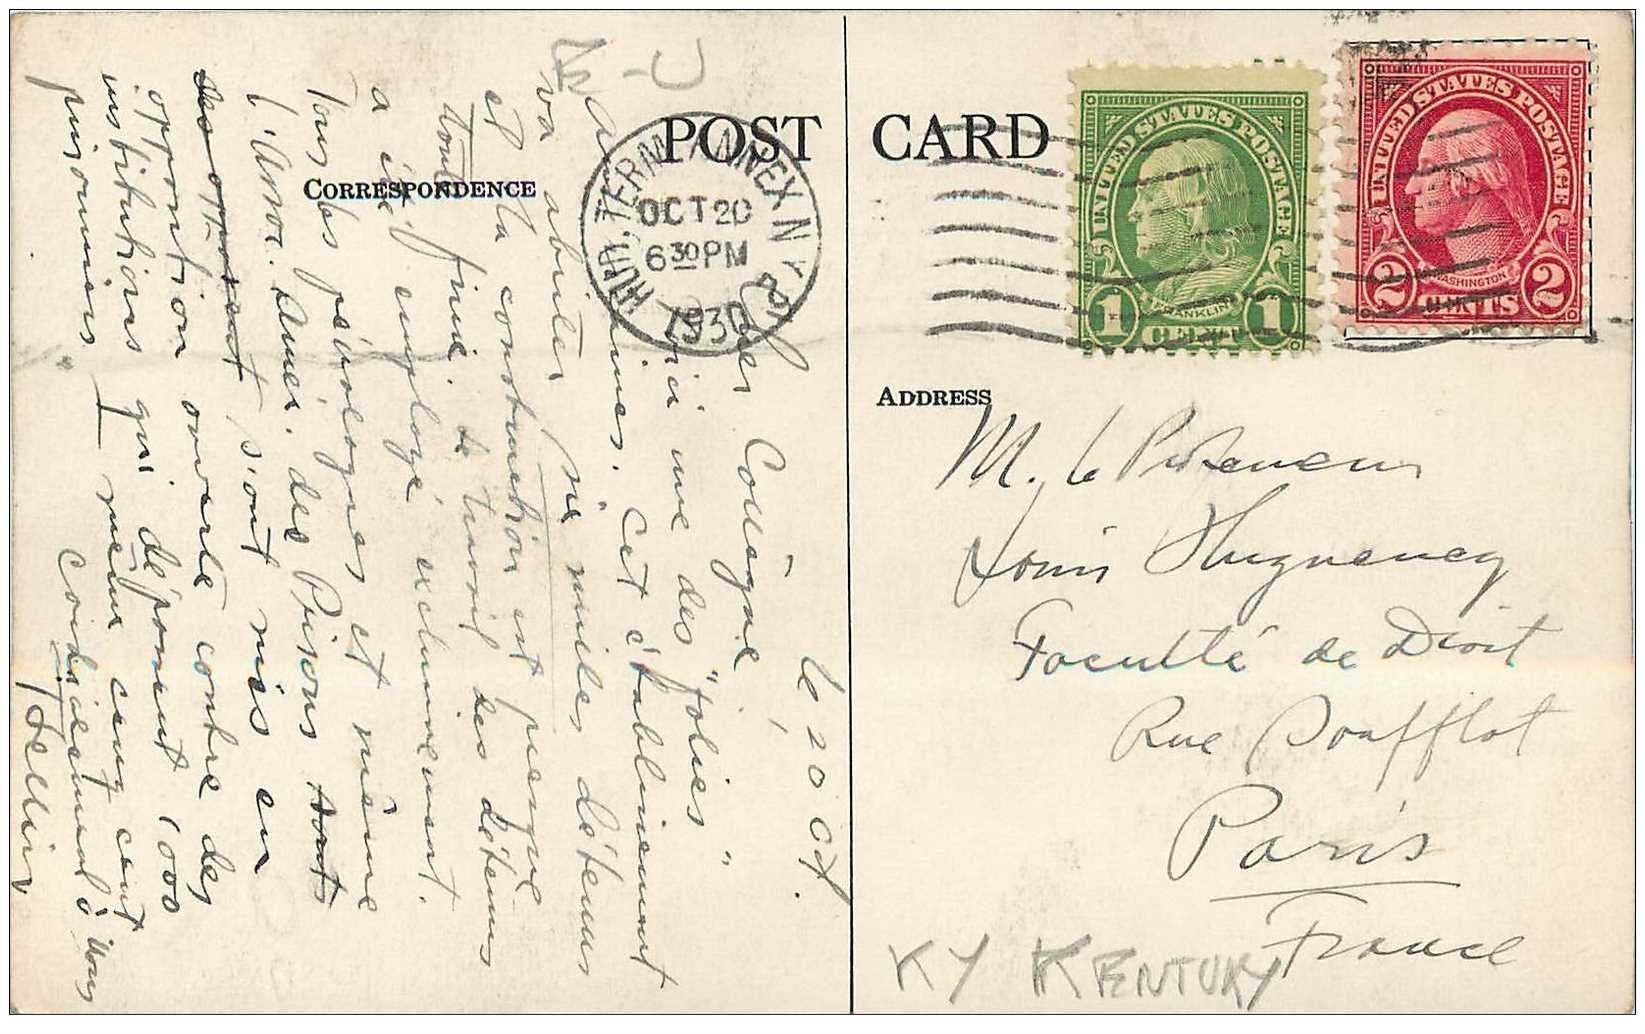 POST CARD
CORRESPONDENCE
HUD. TERM. ANNEX N.Y.
OCT 20
630 PM
1930
UNITED STATES POSTAGE
1 FRANKLIN 1
CENT
UNITED STATES POSTAGE
2 WASHINGTON 2
CENTS
ADDRESS
M. le
Louis Hugueney
Faculté de Droit
Rue Soufflot
Paris
France
KY KENTUKY
le 20 oct.
Collègue,
ici une des "folies"
américaines. Cet établissement
va abriter mille détenus
et la construction est presque
toute finie. Le travail des détenus
a été employé exclusivement.
Tous les pénologues et même
l'Assoc. Amér. des Prisons sont
s'ont mis en
opposition ouverte contre des
institutions qui dépassent 1000
prisonniers. — même cinq cent
Cordialement à vous